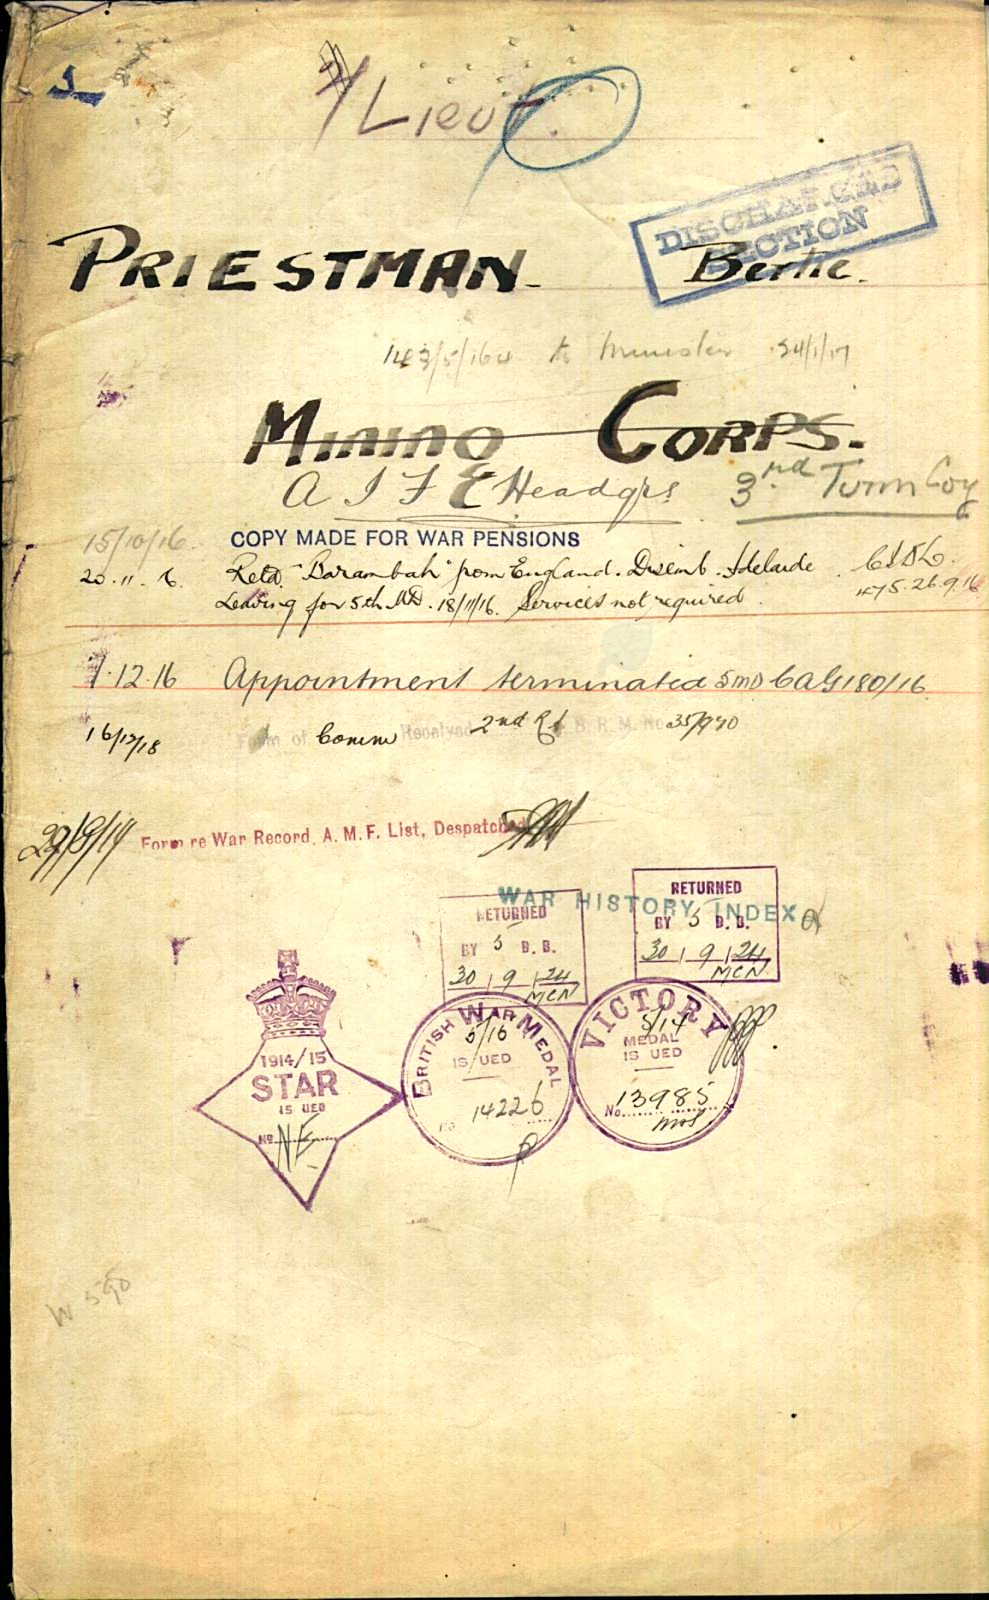 Lieut.
DISCHARGED
SECTION
PRIESTMAN. Bertie.
to Minister 24/1/17
MINING CORPS.
A I F Headqrs 3rd Tunn Coy
15/10/16. COPY MADE FOR WAR PENSIONS
20.11.16 Retd "Barambah" from England. Disemb. Adelaide
475.26.9.16
Leaving for 5th MD. 18/11/16. Services not required.
1.12.16 Appointment terminated 5MD CAG180/16
16/12/18 Form of Comm Received 2nd B.R.M. No 35/970
Form re War Record, A. M. F. List, Despatched
WAR HISTORY INDEX
RETURNED
BY 5 B. B.
30 | 9 | 24
MCN
RETURNED
BY 5 B. B.
30 | 9 | 24
MCN
1914/15
STAR
IS UED
No NE
BRITISH WAR MEDAL
5/16
IS UED
No 14226
VICTORY
5/14
MEDAL
IS UED
No. 13985
W 590